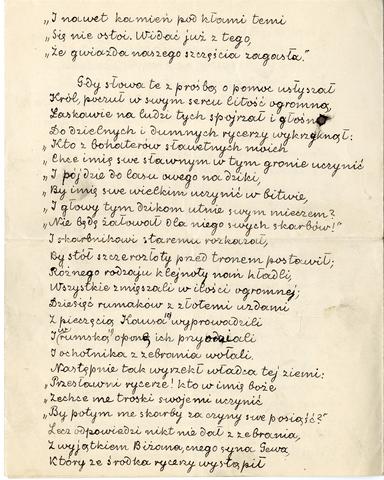 „I nawet kamień pod kłami temi
„Się nie ostoi. Widać już z tego,
„Że gwiazda naszego szczęścia zagasła."
Gdy słowa te z prośbą o pomoc usłyszał
Król, poczuł w swym sercu litość ogromną,
Łaskawie na ludzi tych spojrzał i głośno
Do dzielnych i dumnych rycerzy wykrzyknął:
„Kto z bohaterów sławetnych moich
„Chce imię swe sławnym w tym gronie uczynić
„I pójdzie do lasu owego na dziki,
„By imię swe wielkim uczynić w bitwie,
„I głowy tym dzikom utnie swym mieczem?
„Nie będę żałował dla niego swych skarbów!"
I skarbnikowi staremu rozkazał,
By stół szczerozłoty przed tronem postawił;
Różnego rodzaju klejnoty nań kładli,
Wszystkie zmieszali w ilości ogromnej;
Dziesięć rumaków z złotemi uzdami
Z pieczęcią Kawusa wyprowadzili
I rumską oponą ich przyodziali
I ochotnika z zebrania wołali.
Następnie tak wyrzekł władca tej ziemi:
„Przesławni rycerze! kto w imię boże
„Zechce me troski swojemi uczynić
„By potym me skarby za czyny swe posiąść?"
Lecz odpowiedzi nikt nie dał z zebrania,
Z wyjątkiem Biżana, cnego syna Gewa,
Który ze środka rycerzy wystąpił